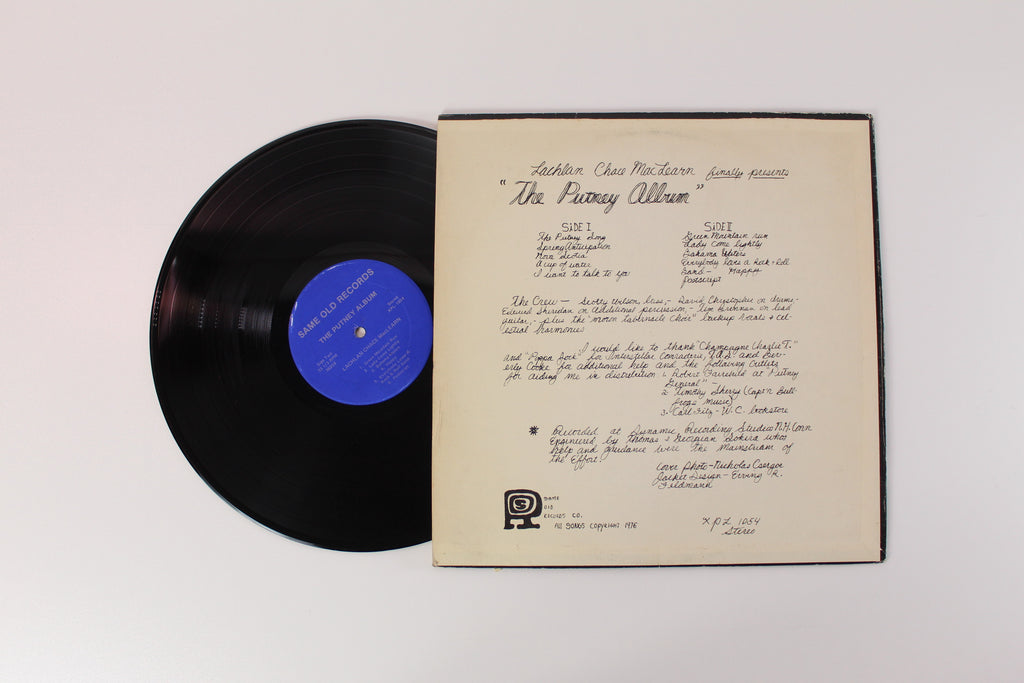 SAME OLD RECORDS
THE PUTNEY ALBUM
LACHLAN CHACE MacLEARN
Lachlan Chace MacLearn finally presents
"The Putney Album"
SIDE I
The Putney Song
Spring Anticipation
Nova Scotia
A cup of water
I want to talk to you
SIDE II
Green Mountain run
Lady Come lightly
Bahama Waters
Everybody loves a Rock + Roll
Band - Mappy
Postscript
The Crew - Scotty Wilson, bass, - David Christopher on drums -
Edward Sheridan on additional percussion, - Tim Kirkman on lead
guitar, - plus the "moron tabernacle Choir" backup vocals & cel-
estial harmonies
I would like to thank "Champagne Charlie T."
and "Poppa Jock" for Interstellar Conspirators, and Bev-
erly Cooke for additional help and the following Outlets
for aiding me in distribution 1. Robert Fairchild at Putney
General" -
2. Timothy Sherry (Capt'n Bull-
frog's music)
3. Carl Fitz - W.C. bookstore
* Recorded at Dynamic Recording Studios N.H. Conn
Engineered by Thomas & Georgian whos
help and guidance were the Mainstream of
the Effort!
Cover Photo - Nicholas
Jacket Design - Erving R.
Feldmann
SAME
OLD
RECORDS CO.
All SONGS COPYRIGHT 1976
XPL 1054
Stereo